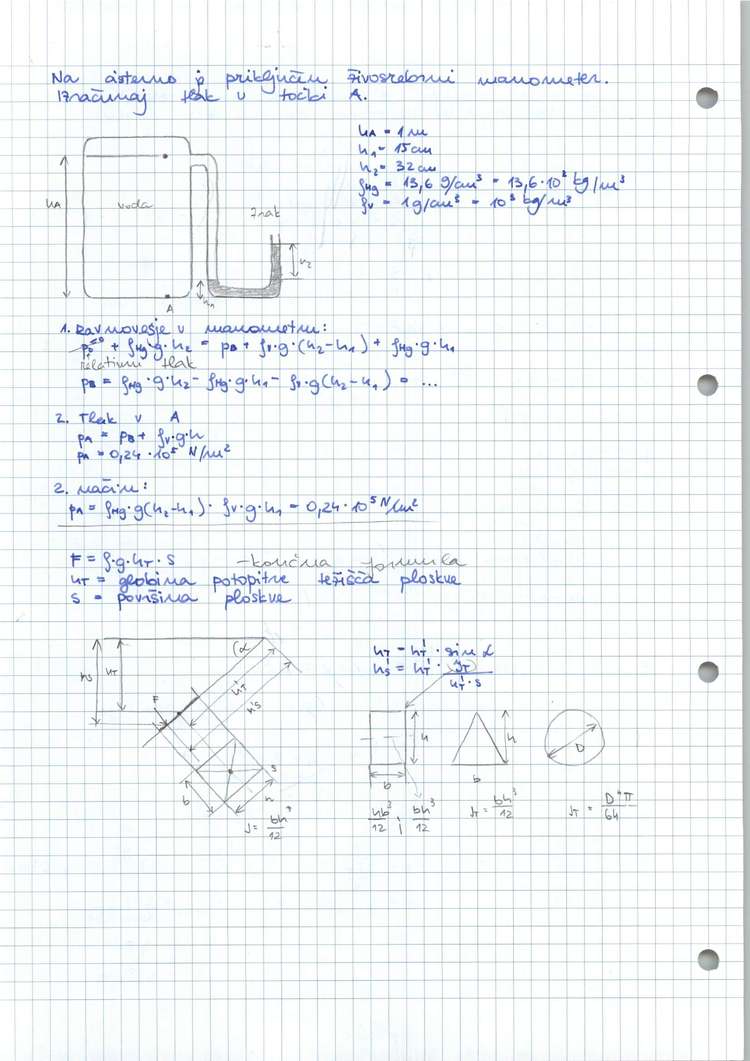 Na cisterno je priključen živosrebrni manometer.
Izračunaj tlak v točki A.
hA = 1 m
h1 = 15 cm
h2 = 32 cm
ρHg = 13,6 g/cm³ = 13,6·10³ kg/m³
ρv = 1 g/cm³ = 10³ kg/m³
hA
voda
zrak
h2
h1
A
1. Ravnovesje v manometru:
p0 =0 + ρHg·g·h2 = pB + ρv·g·(h2-h1) + ρHg·g·h1
relativni tlak
pB = ρHg·g·h2 - ρHg·g·h1 - ρv·g(h2-h1) = ...
2. Tlak v A
pA = pB + ρv·g·h
pA = 0,24·10⁵ N/m²
2. način:
pA = ρHg·g(h2-h1)· ρv·g·h1 = 0,24·10⁵ N/m²
F = ρ·g·hT·S - končna formula
hT = globina potopitve težišča ploskve
S = površina ploskve
α
hs
hT
h'T
h's
F
S
b
h
J = bh³/12
hT = h'T · sin α
h's = h'T · JT/h'T·S
h
b
hb³/12 ; bh³/12
h
b
JT = bh³/12
D
JT = D⁴π/64